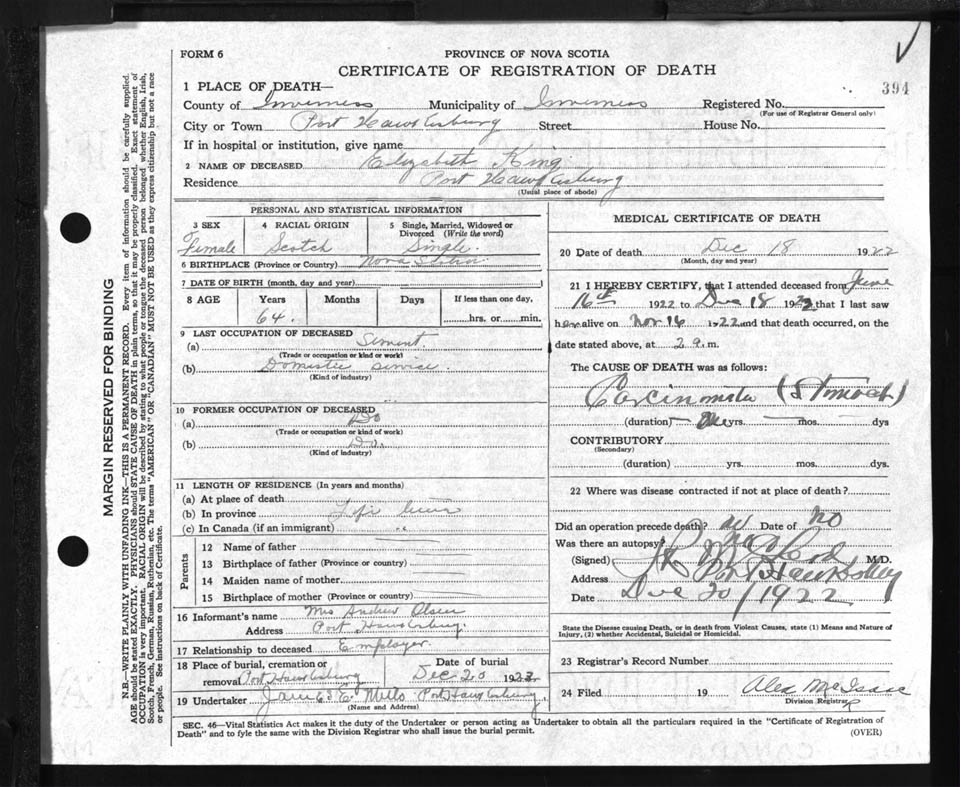 394
FORM 6
PROVINCE OF NOVA SCOTIA
CERTIFICATE OF REGISTRATION OF DEATH
1 PLACE OF DEATH—
County of Inverness Municipality of Inverness Registered No.
(For use of Registrar General only)
City or Town Port Hawkesbury Street House No.
If in hospital or institution, give name
2 NAME OF DECEASED Elizabeth King
Residence Port Hawkesbury
(Usual place of abode)
PERSONAL AND STATISTICAL INFORMATION
3 SEX 4 RACIAL ORIGIN 5 Single, Married, Widowed or
Divorced (Write the word)
Female Scotch Single.
6 BIRTHPLACE (Province or Country) Nova Scotia
7 DATE OF BIRTH (month, day and year)
8 AGE Years Months Days If less than one day,
64. hrs. or min.
9 LAST OCCUPATION OF DECEASED
(a)
(Trade or occupation or kind of work)
(b) Domestic
(Kind of industry)
10 FORMER OCCUPATION OF DECEASED
(a) Do
(Trade or occupation or kind of work)
(b) Do.
(Kind of industry)
11 LENGTH OF RESIDENCE (In years and months)
(a) At place of death
(b) In province
(c) In Canada (if an immigrant) "
Parents
12 Name of father
13 Birthplace of father (Province or country)
14 Maiden name of mother
15 Birthplace of mother (Province or country)
16 Informant's name Mrs Andrew Olsen
Address Port Hawkesbury
17 Relationship to deceased Employer.
18 Place of burial, cremation or Date of burial
removal Port Hawkesbury Dec 20 1922
19 Undertaker James E Mills Port Hawkesbury
(Name and Address)
MEDICAL CERTIFICATE OF DEATH
20 Date of death Dec 18 1922
(Month, day and year)
21 I HEREBY CERTIFY, that I attended deceased from June
16th 1922 to Dec 18 1922 that I last saw
her alive on Nov 16 1922 and that death occurred, on the
date stated above, at 2 a.m.
The CAUSE OF DEATH was as follows:
Carcinoma (Stomach)
(duration) yrs. mos. dys
CONTRIBUTORY
(Secondary)
(duration) yrs. mos. dys.
22 Where was disease contracted if not at place of death?
Did an operation precede death? Date of no
Was there an autopsy?
(Signed) M.D.
Address Pt Hawkesbury
Date Dec 20/1922
State the Disease Causing Death, or in death from Violent Causes, state (1) Means and Nature of
Injury, (2) whether Accidental, Suicidal or Homicidal.
23 Registrar's Record Number
24 Filed 19 Alex McIsaac
Division Registrar
SEC. 46—Vital Statistics Act makes it the duty of the Undertaker or person acting as Undertaker to obtain all the particulars required in the "Certificate of Registration of
Death" and to fyle the same with the Division Registrar who shall issue the burial permit. (OVER)
MARGIN RESERVED FOR BINDING
N.B.—WRITE PLAINLY WITH UNFADING INK—THIS IS A PERMANENT RECORD. Every item of information should be carefully supplied.
AGE should be stated EXACTLY. PHYSICIANS should STATE CAUSE OF DEATH in plain terms, so that it may be properly classified. Exact statement of
OCCUPATION is very important. RACIAL ORIGIN will be described by stating to what people or tongue the deceased person belonged whether English, Irish,
Scotch, French, German, Russian, Ruthenian, etc. The terms "AMERICAN" OR "CANADIAN" MUST NOT BE USED as they express citizenship but not a race
or people. See instructions on back of Certificate.